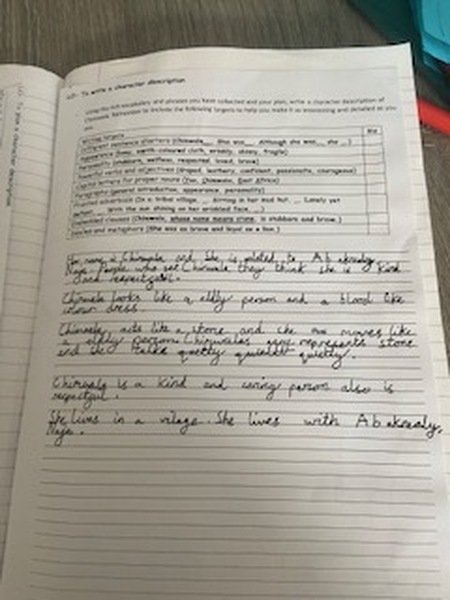 LO- To write a character description
Using the rich vocabulary and phrases you have collected and your plan, write a character description of
Chinwala. Remember to include the following targets to help you make it as interesting and detailed as you
can.
Writing targets Me
Different sentence starters (Chinwala... She was... Although she was..., she ...)
Appearance (long, earth-coloured cloth, wrinkly, skinny, fragile)
Personality (stubborn, selfless, respected, loved, brave)
Powerful verbs and adjectives (draped, leathery, confident, passionate, courageous)
Capital letters for proper nouns (Chinwala, East Africa)
Paragraphs (general introduction, appearance, personality)
Fronted adverbials (In a tribal village, ... Sitting in her mud hut, ... Lately yet
With the sun shining on her wrinkled face, ...)
Embedded clauses (Chinwala, whose name means stone, is stubborn and brave.)
Similes and metaphors (She was as brave and loyal as a lion.)
name is Chinwala and She is related to
Naja. People who see Chinwala they think she is kind
and respectful.
Chinwala looks like a eldly person and a blood like
colour dress.
Chinwala acts like a stone and she moves like
a eldly person. Chinwalas represents stone
and she talks quietly quietly.
Chinwala is a kind and caring person also is
respectful.
She lives in a village. She lives with
Naja.